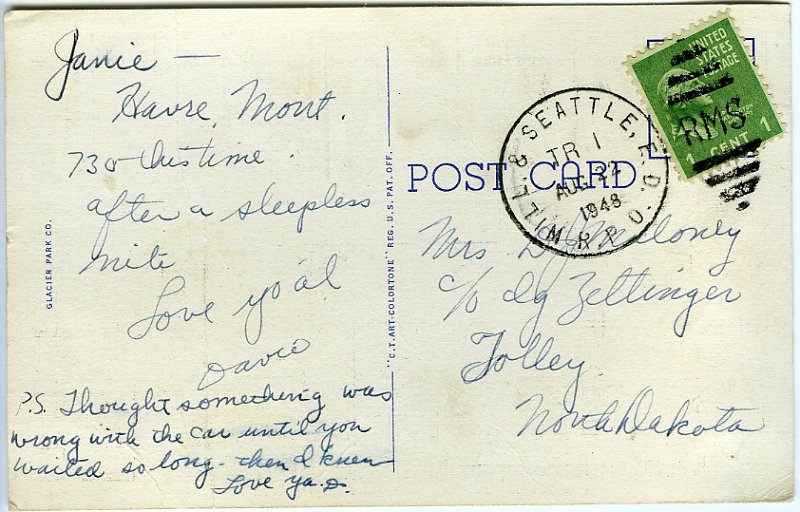 Janie —
Havre, Mont.
730 this time.
after a sleepless
nite
Love ya al
David
P.S. Thought something was
wrong with the car until you
waited so long - then I knew
Love ya. D.
GLACIER PARK CO.
"C.T. ART-COLORTONE" REG. U.S. PAT. OFF.
POST CARD
WILL. & SEATTLE, E.D.
TR 1
AUG 22
1948
R.P.O.
UNITED
STATES
POSTAGE
RMS
1 CENT 1
Mrs D Maloney
c/o Zettinger
Tolley
North Dakota